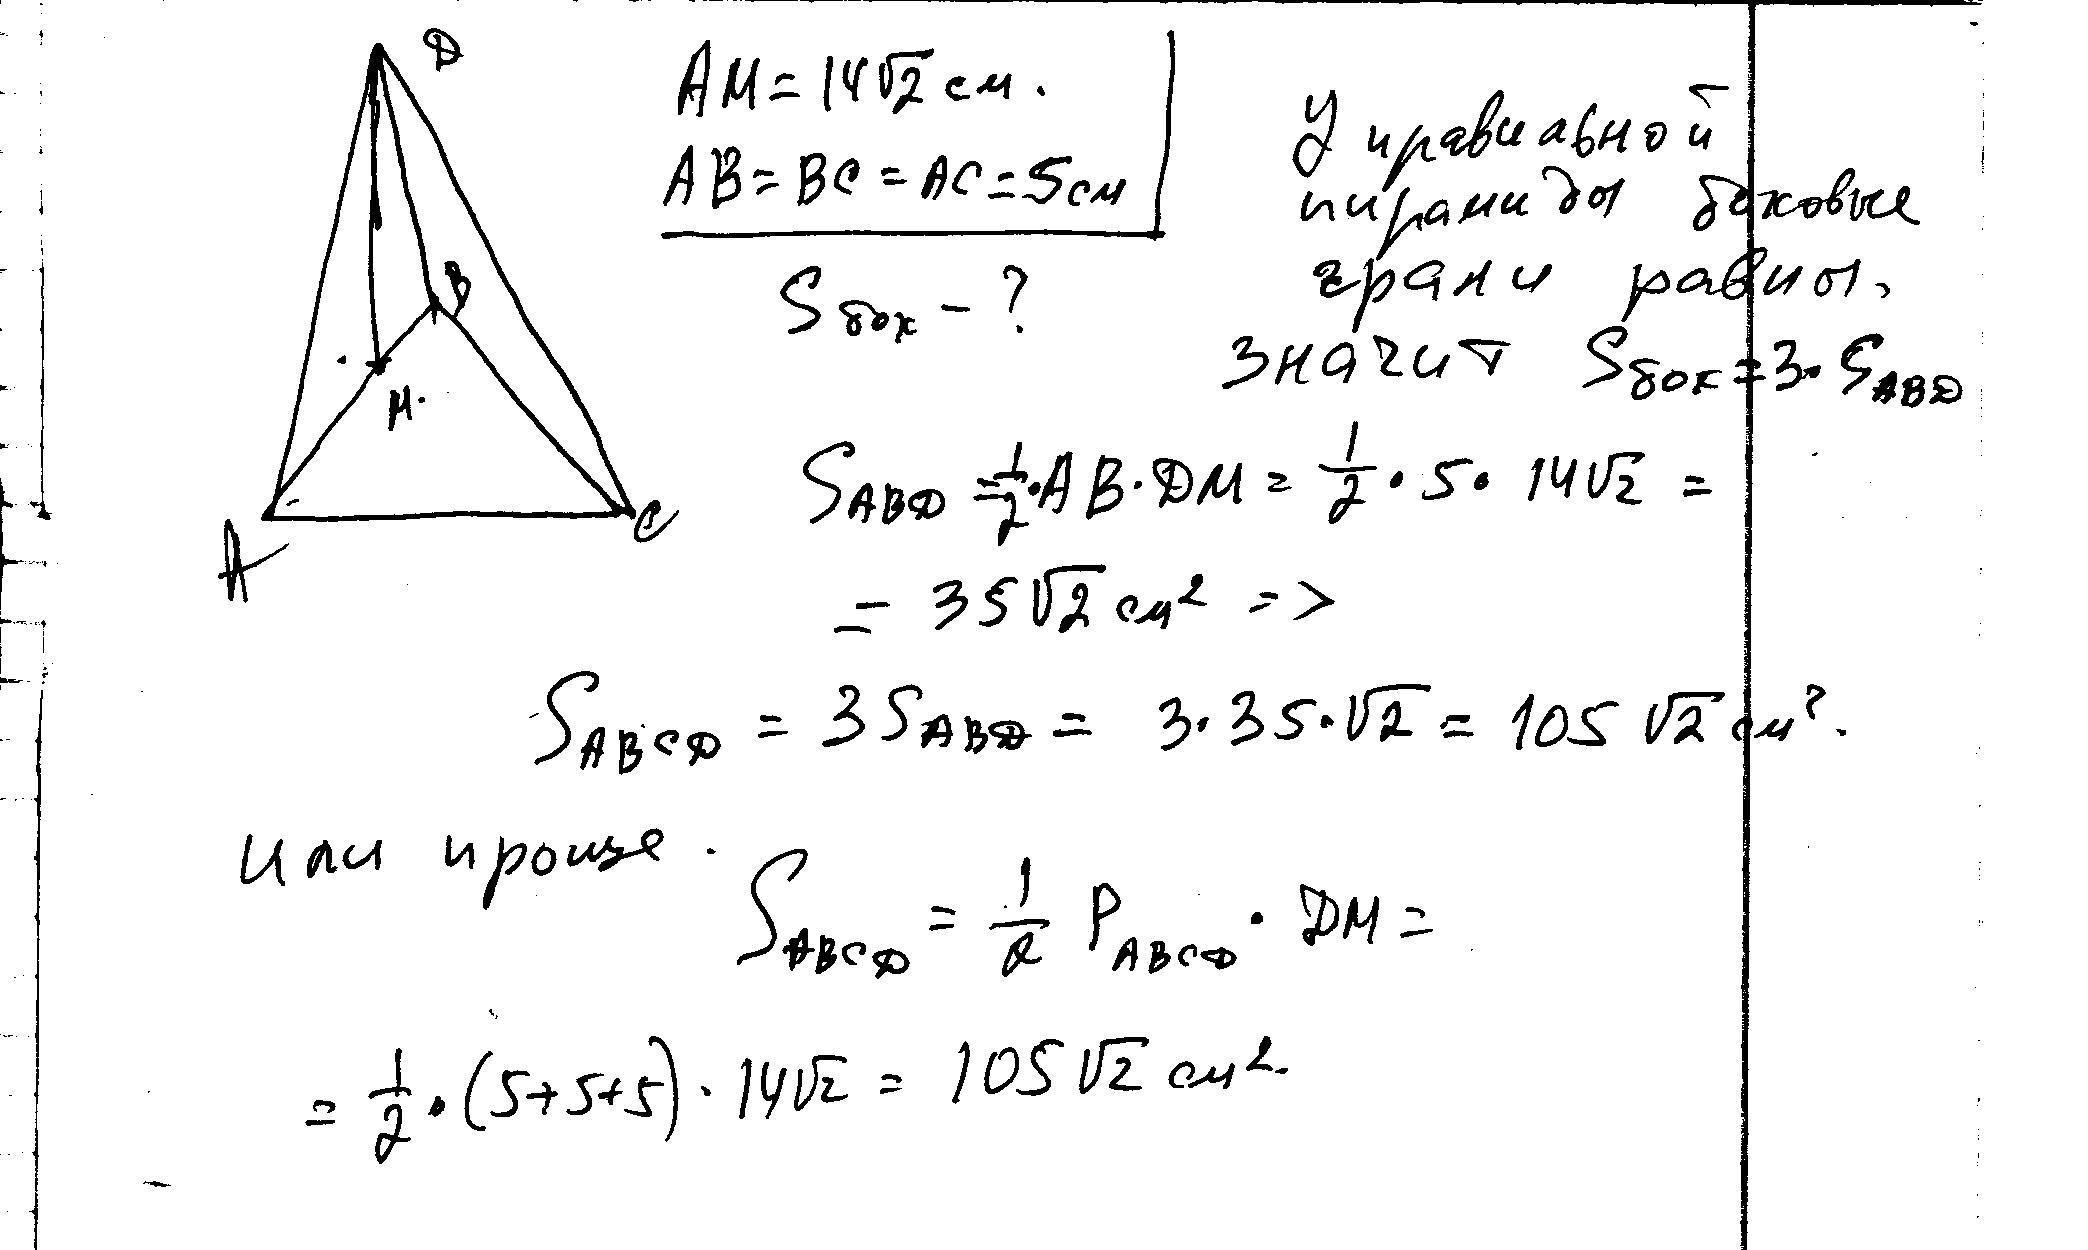 D
B
M.
A
C
AM = 14√2 см.
AB = BC = AC = 5 см
Sбок - ?
У правильной
пирамиды боковые
грани равны.
значит Sбок = 3·SABD
SABD = 1/2·AB·DM = 1/2·5·14√2 =
= 35√2 см² =>
SABCD = 3SABD = 3·35·√2 = 105√2 см².
или проще.
SABCD = 1/2 PABCD · DM =
= 1/2·(5+5+5)·14√2 = 105√2 см².